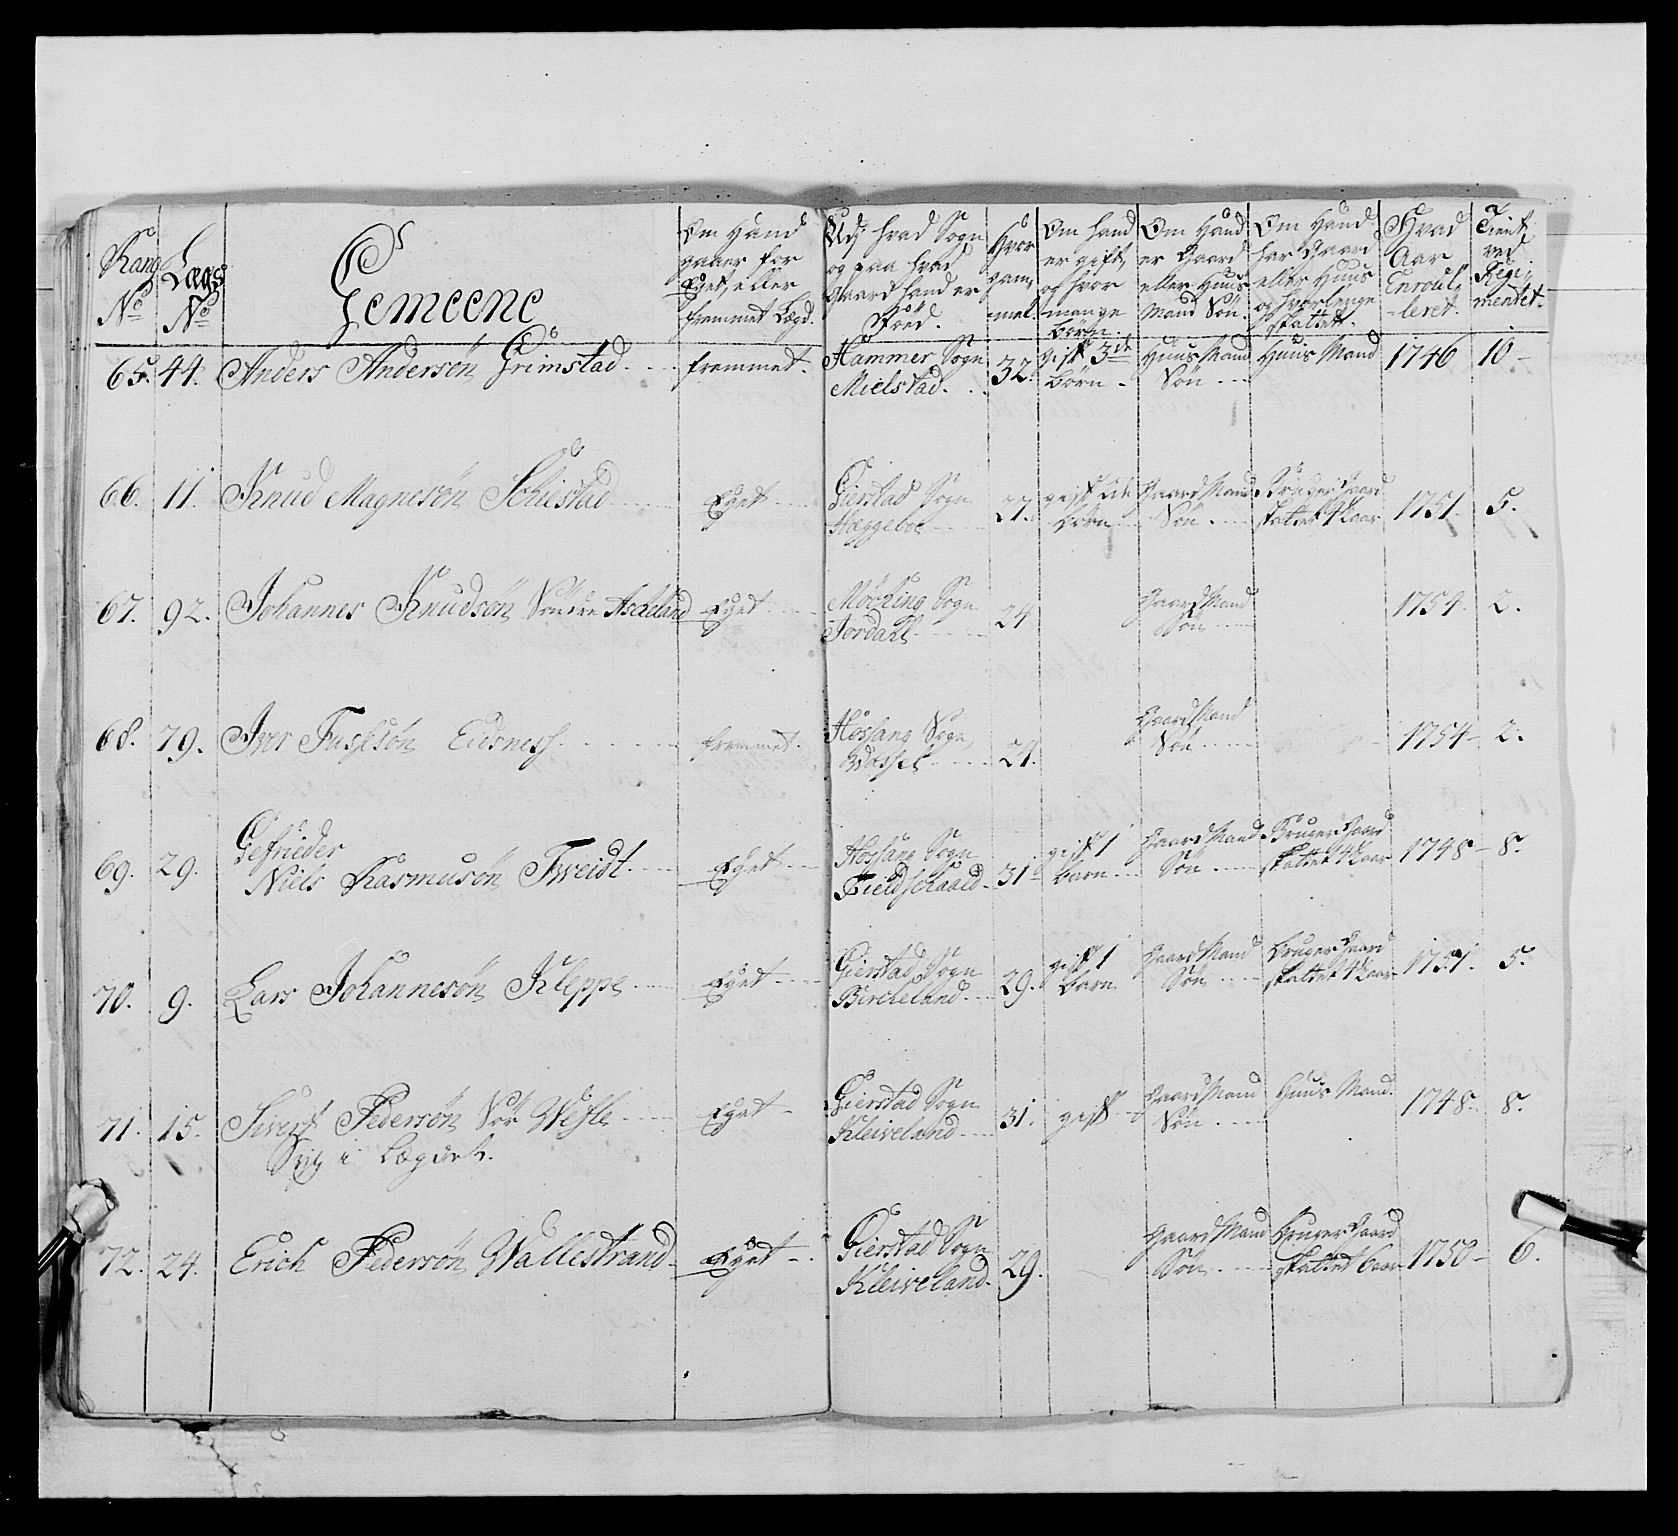 Rang No
Lægs No
Gemeene
Om Hand gaaer for Eget, eller fremmet Lægd.
Udj hvad Sogn og paa hvad Gaard hand er Föed.
Hvor gam, mel
Om hand er gift, og hvor mange börn.
Om Hand er Gaard eller Huus Mand Sön.
Om Hand har Gaard eller Huus og hvorlenge skattet.
Hvad Aar Enroul, leret.
Tient ved Regi, mentet.
65. 44. Anders Andersön Grimstad fremmet. Hammer Sogn Mielstad. 32. gift 3de börn Huus Mand Sön Huus Mand 1746 10
66. 11. Knud Magnesön Schiestad Eget Gierstad Sogn Heggeboe 27. gift 2de börn Gaard Mand Sön Bruger Gaard skattet 4 Aar 1751. 5.
67. 92. Johannes Knudsön Söndre Ascheland Eget Möching Sogn Jordahl 24 Gaard Mand Sön 1754. 2.
68. 79. Iver Eidsness fremmet. Hossang Sogn Wassel 24. Gaard Mand Sön 1754 2.
69. 29. Gefrieder
Niels Rasmusön Tweidt. Eget Hossang Sogn Fieldschaald 31 gift 1 barn Gaard Mand Sön Bruger Gaard skattet 4 Aar 1748 8.
70. 9. Lars Johannesön Kleppe Eget Gierstad Sogn Bircheland 29. gift 1 barn Gaard Mand Sön Bruger Gaard skattet 4 Aar 1751. 5.
71. 15. Sivert Pedersön Nör Wesle Eget Gierstad Sogn Kleiveland 31. gift Gaard Mand Sön Huus Mand. 1748. 8.
Syg i Lægdet.
72. 24. Erich Pedersön Wallestrand Eget Gierstad Sogn Kleiveland. 29. Gaard Mand Sön Bruger Gaard skattet 6 aar 1750 6.